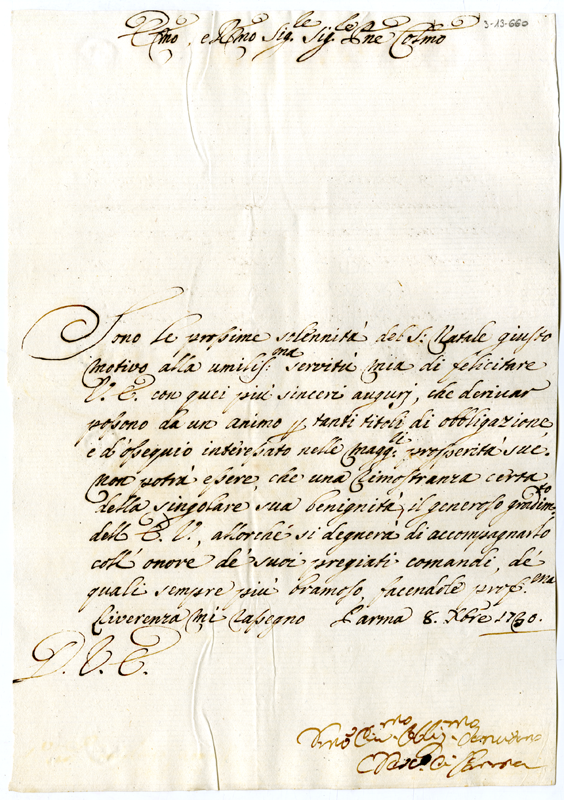 3-13-660
Em.o e R.mo Sig.le Sig.le P.ne Col.mo
Sono le prossime solennità del S. Natale giusto
motivo alla umilis.ma servitù mia di felicitare
V. E. con quei più sinceri augurj, che derivar
possono da un animo p tanti titoli di obbligazione
e d'ossequio interessato nelle magg.li prosperità sue.
non potrà essere che una dimostranza certa
della singolare sua benignità, il generoso gradim.to
dell' E. V., allorchè si degnerà di accompagnarlo
coll' onore de' suoi pregiati comandi, de'
quali sempre più bramoso, facendole prof.ma
riverenza mi rassegno Parma 8. Xbre
D. V. E.
Obblig.mo